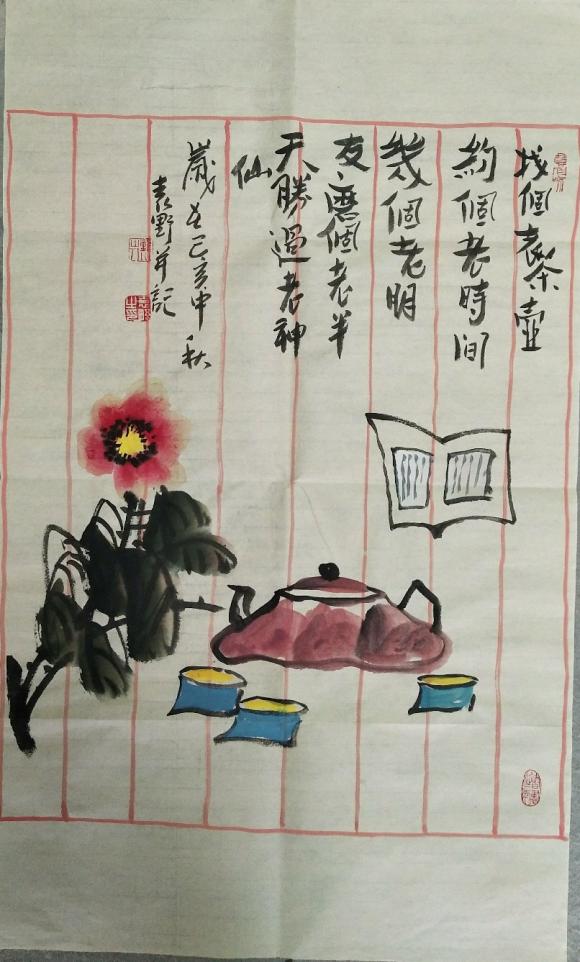 找個老茶壺
約個老時间
幾個老朋
友磨個老半
天勝過老神
仙
歲在己亥中秋
袁野并記